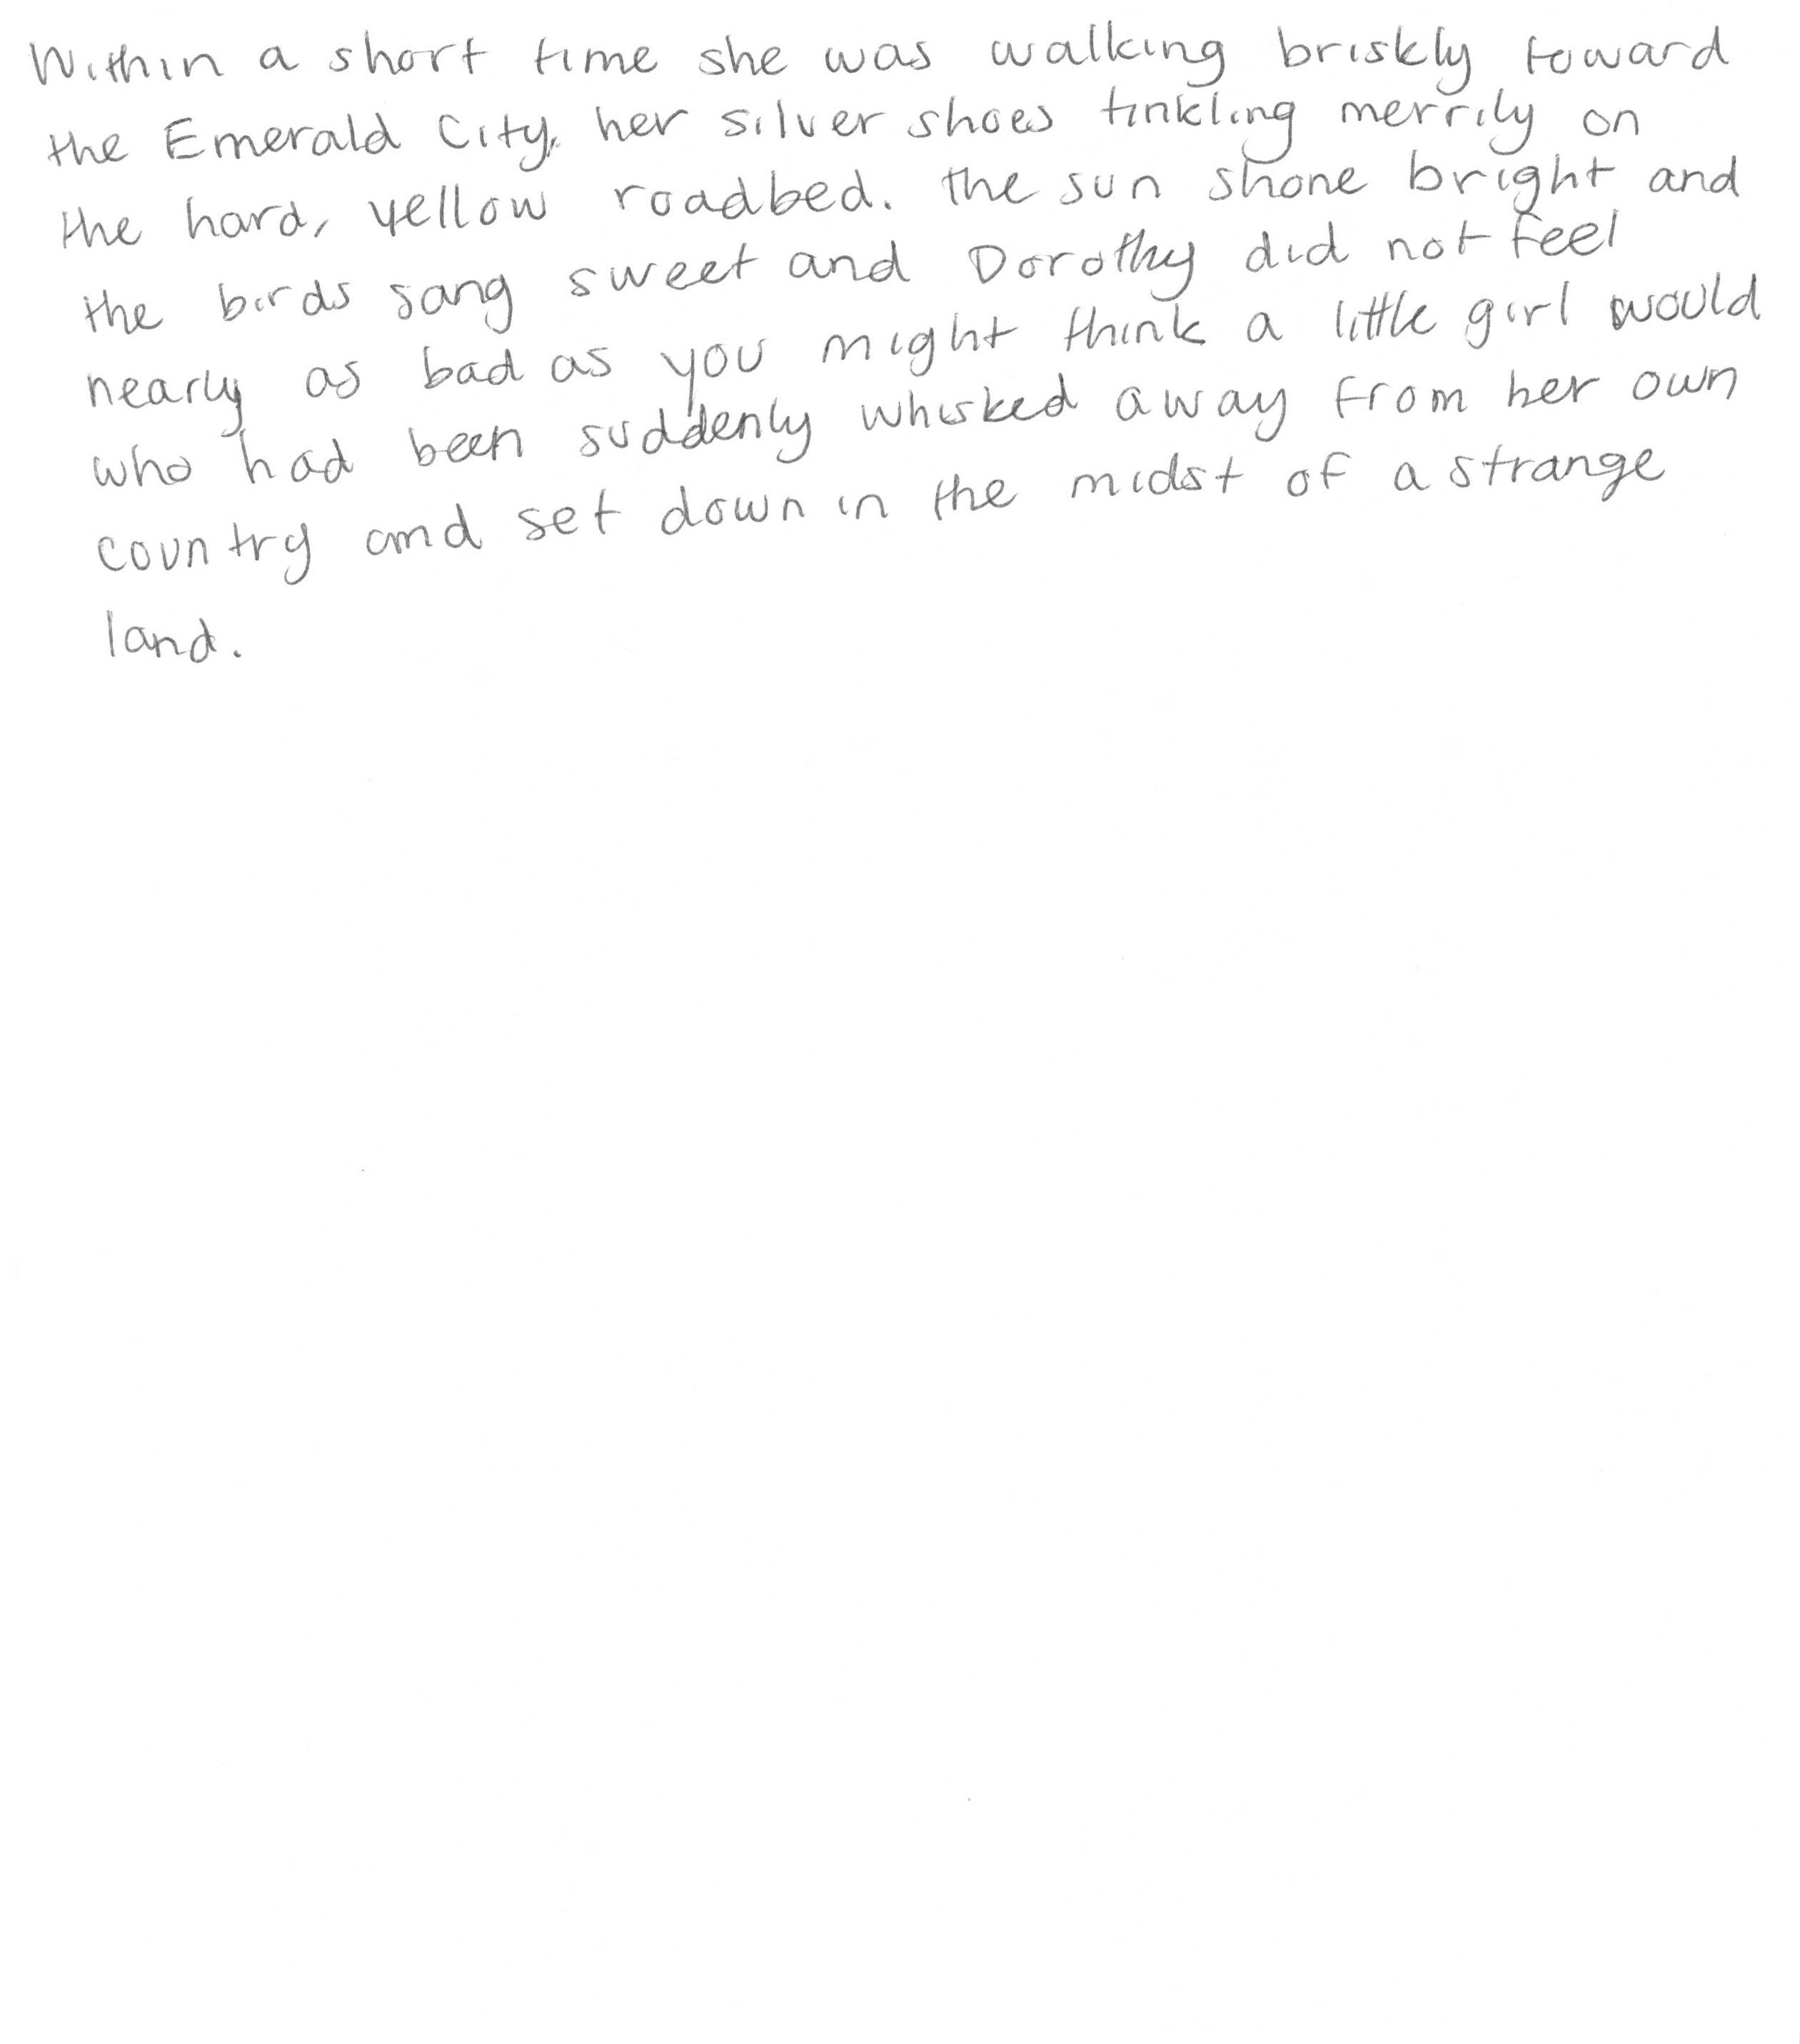 Within a short time she was walking briskly toward
the Emerald City, her silver shoes tinkling merrily on
the hard, yellow roadbed. the sun shone bright and
the birds sang sweet and Dorothy did not feel
nearly as bad as you might think a little girl would
who had been suddenly whisked away from her own
country and set down in the midst of a strange
land.